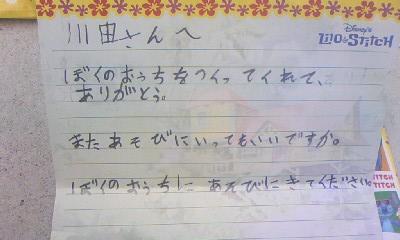 Disney's
LILO & STITCH
川田さんへ
ぼくのおうちをつくってくれて、
ありがとう。
またあそびにいってもいいですか。
ぼくのおうちにあそびにきてください。
STITCH
STITCH